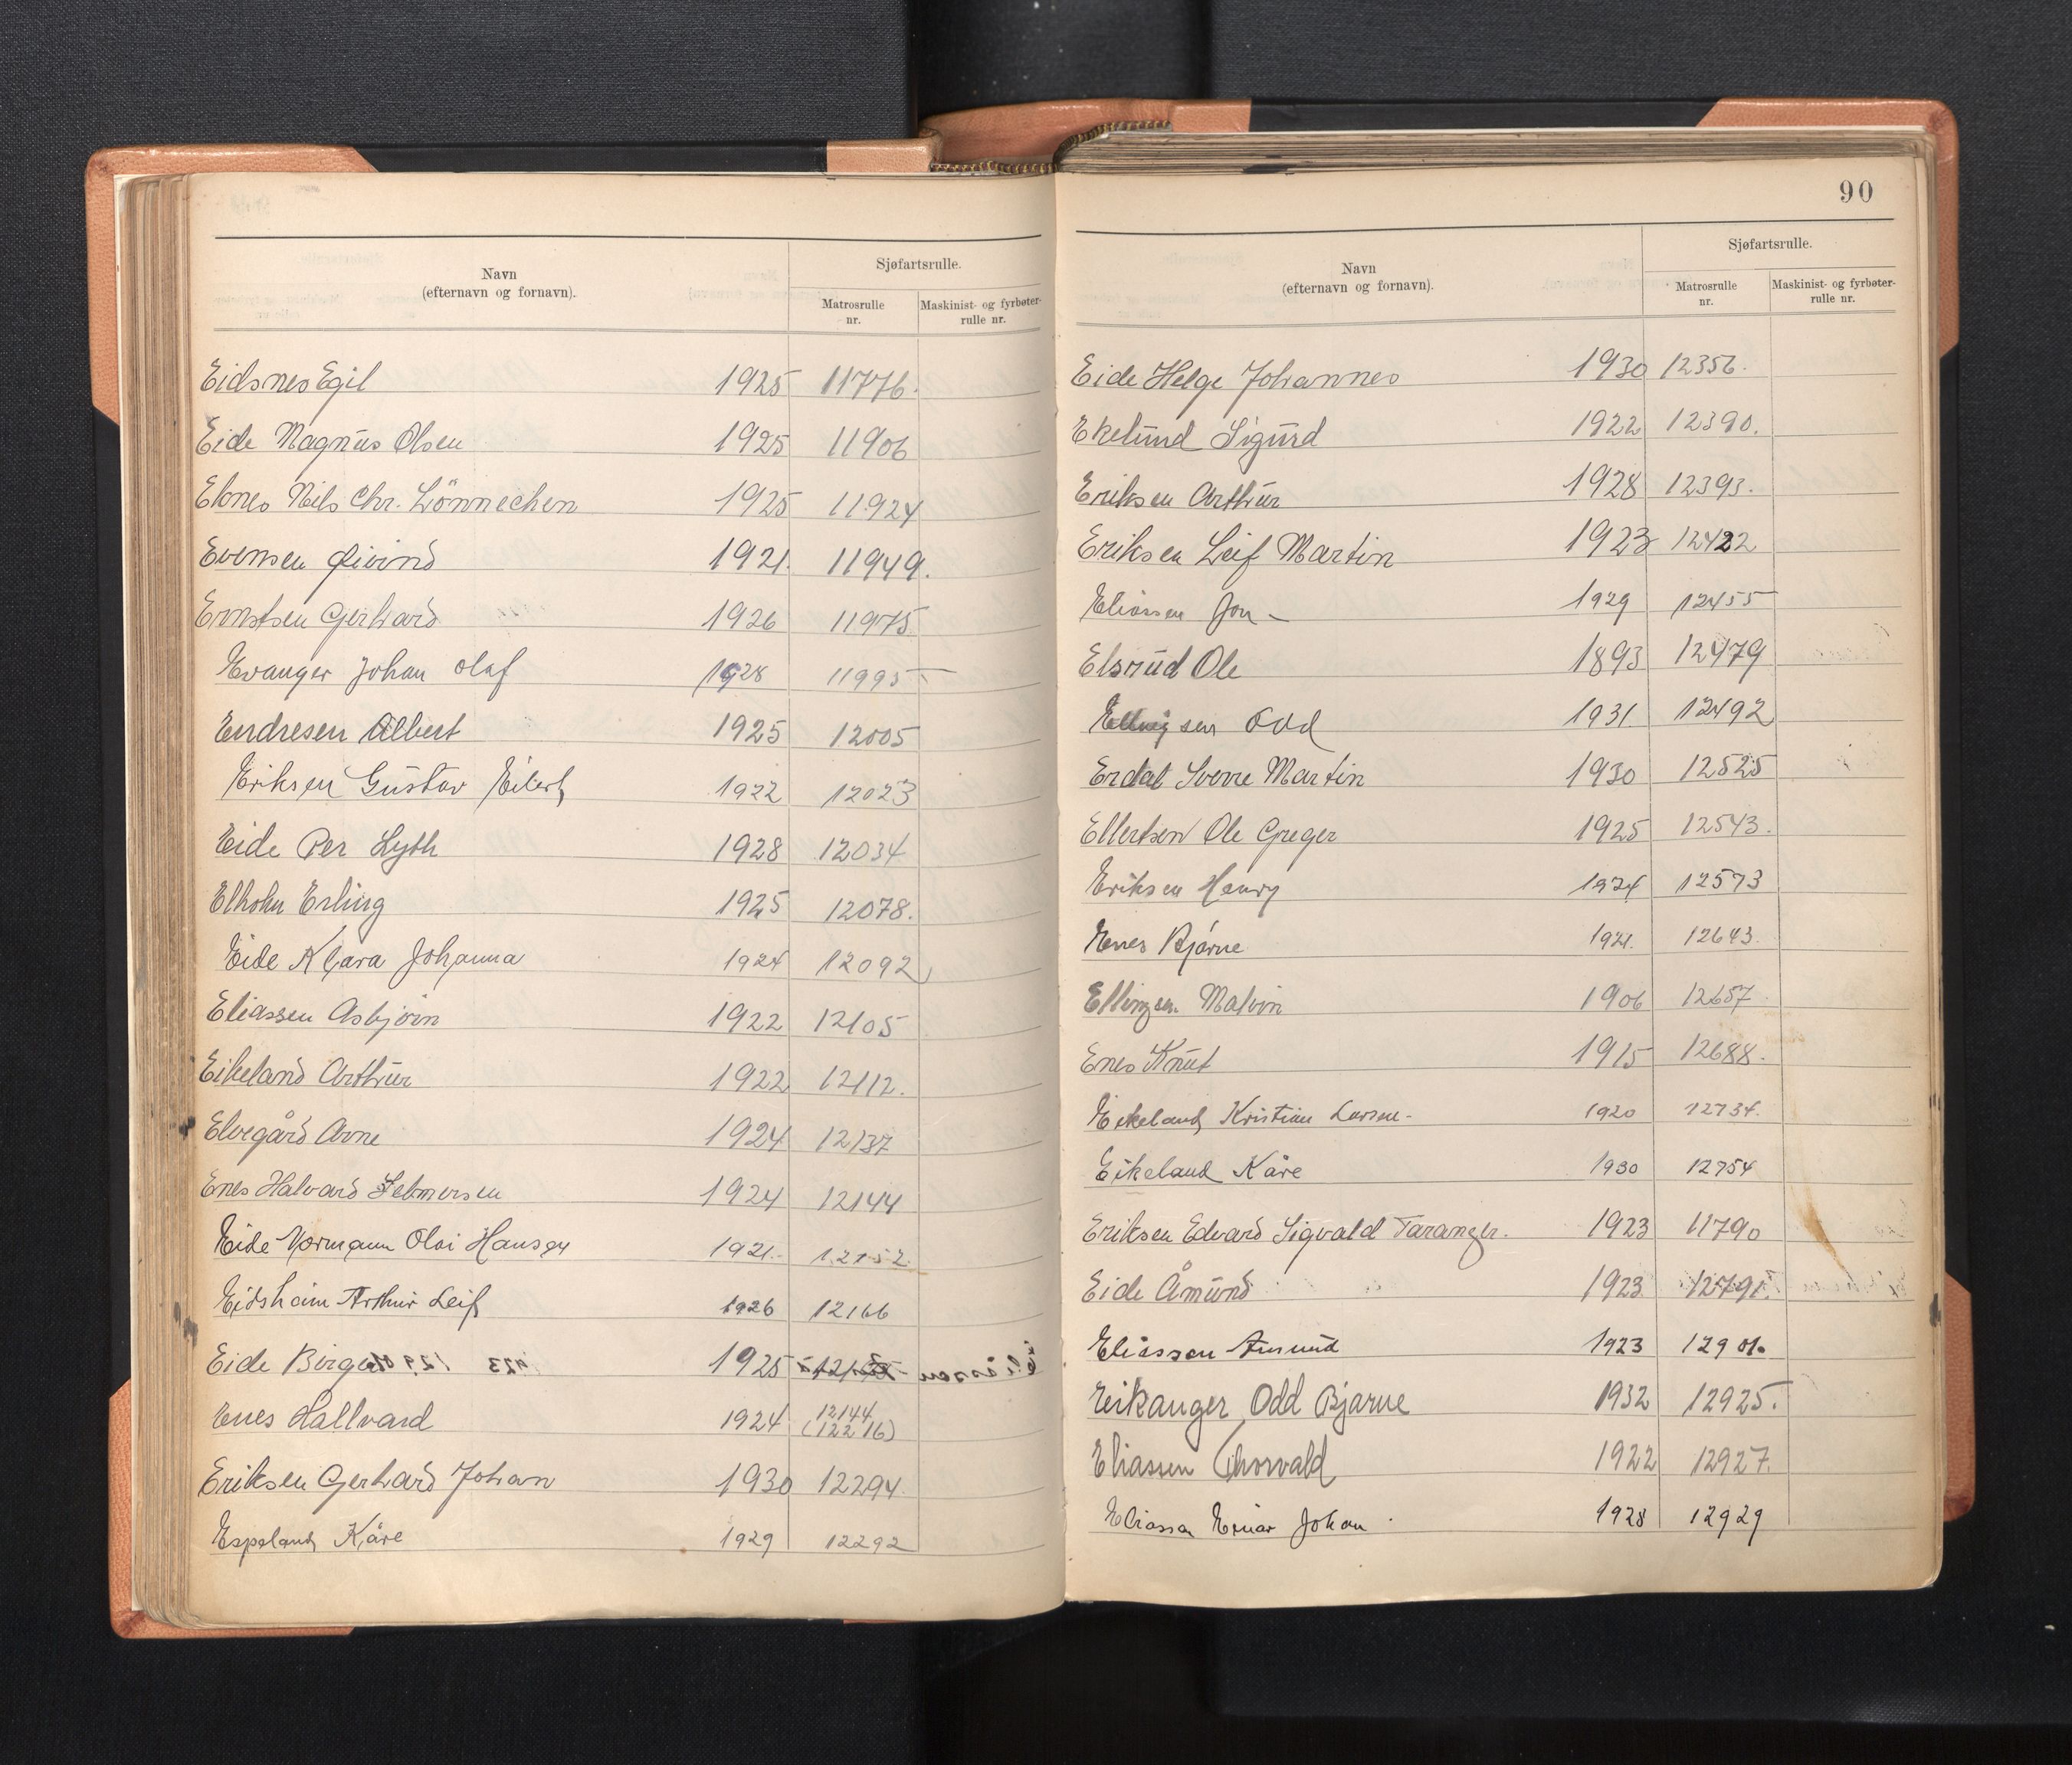 Navn
(efternavn og fornavn).
Sjøfartsrulle.
Matrosrulle
nr.
Maskinist- og fyrbøter-
rulle nr.
Eidsnes Egil 1925 11776.
Eide Magnus Olsen 1925 11906
Nils Chr. Lönnechen 1925 11924
Evensen Øivind 1921. 11949.
Ernstsen Gerhard 1926 11975
Evanger Johan Olaf 1928 11995
Endresen Albert 1925 12005
Eriksen Gustav Eilert 1922 12023
Eide Per Lyth 1928 12034
Erling 1925 12078.
Eide Klara Johanna 1924 12092
Eliassen Asbjörn 1922 12105
Eikeland Arthur 1922 12112.
Elvegård Arne 1924 12137
Enes Halvard Selmersen 1924 12144
Eide Normann Olai Hansen 1921. 12152
Eidsheim Arthur Leif 1926 12166
Eide Birger 1925
Enes Hallvard 1924 12144
(12216)
Eriksen Gerhard Johan 1930 12294.
Espeland Kåre 1929 12292
90
Navn
(efternavn og fornavn).
Sjøfartsrulle.
Matrosrulle
nr.
Maskinist- og fyrbøter-
rulle nr.
Eide Helge Johannes 1930 12356.
Ekelund Sigurd 1922 12390.
Eriksen Arthur 1928 12393.
Eriksen Leif Martin 1923 12422
Eliassen Jon - 1929 12455
Elsrud Ole 1893 12479
Ellingsen Odd 1931 12492
Erdal Sverre Martin 1930 12525
Ellertsen Ole Greger 1925 12543.
Eriksen Henry 1924 12573
Enes Bjarne 1921. 12643.
Ellingsen Malvin 1906 12657
Enes Knut 1915 12688.
Eikeland Kristian Larsen- 1920 12734.
Eikeland Kåre 1930 12754
Eriksen Edvard Sigvald Taranger. 1923 11790
Eide Åmund 1923 12791.
Eliassen Amund 1923 12901.
Eikanger Odd Bjarne 1932 12925.
Eliassen Thorvald 1922 12927.
Eliassen Einar Johan 1928 12929